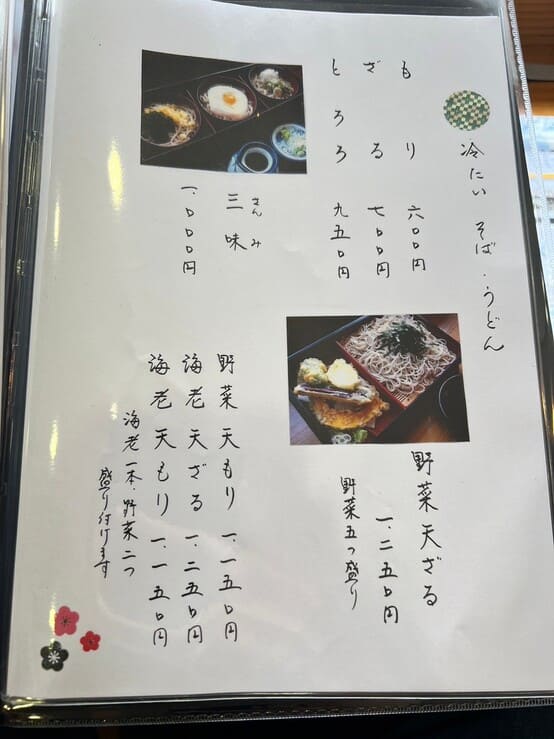 冷たい そば・うどん
もり 六〇〇円
ざる 七〇〇円
とろろ 九五〇円
さんみ
三味
一、〇〇〇円
野菜天ざる
一、二五〇円
野菜五つ盛り
野菜天もり 一、一五〇円
海老天ざる 一、二五〇円
海老天もり 一、一五〇円
海老一本・野菜二つ
盛り付けます